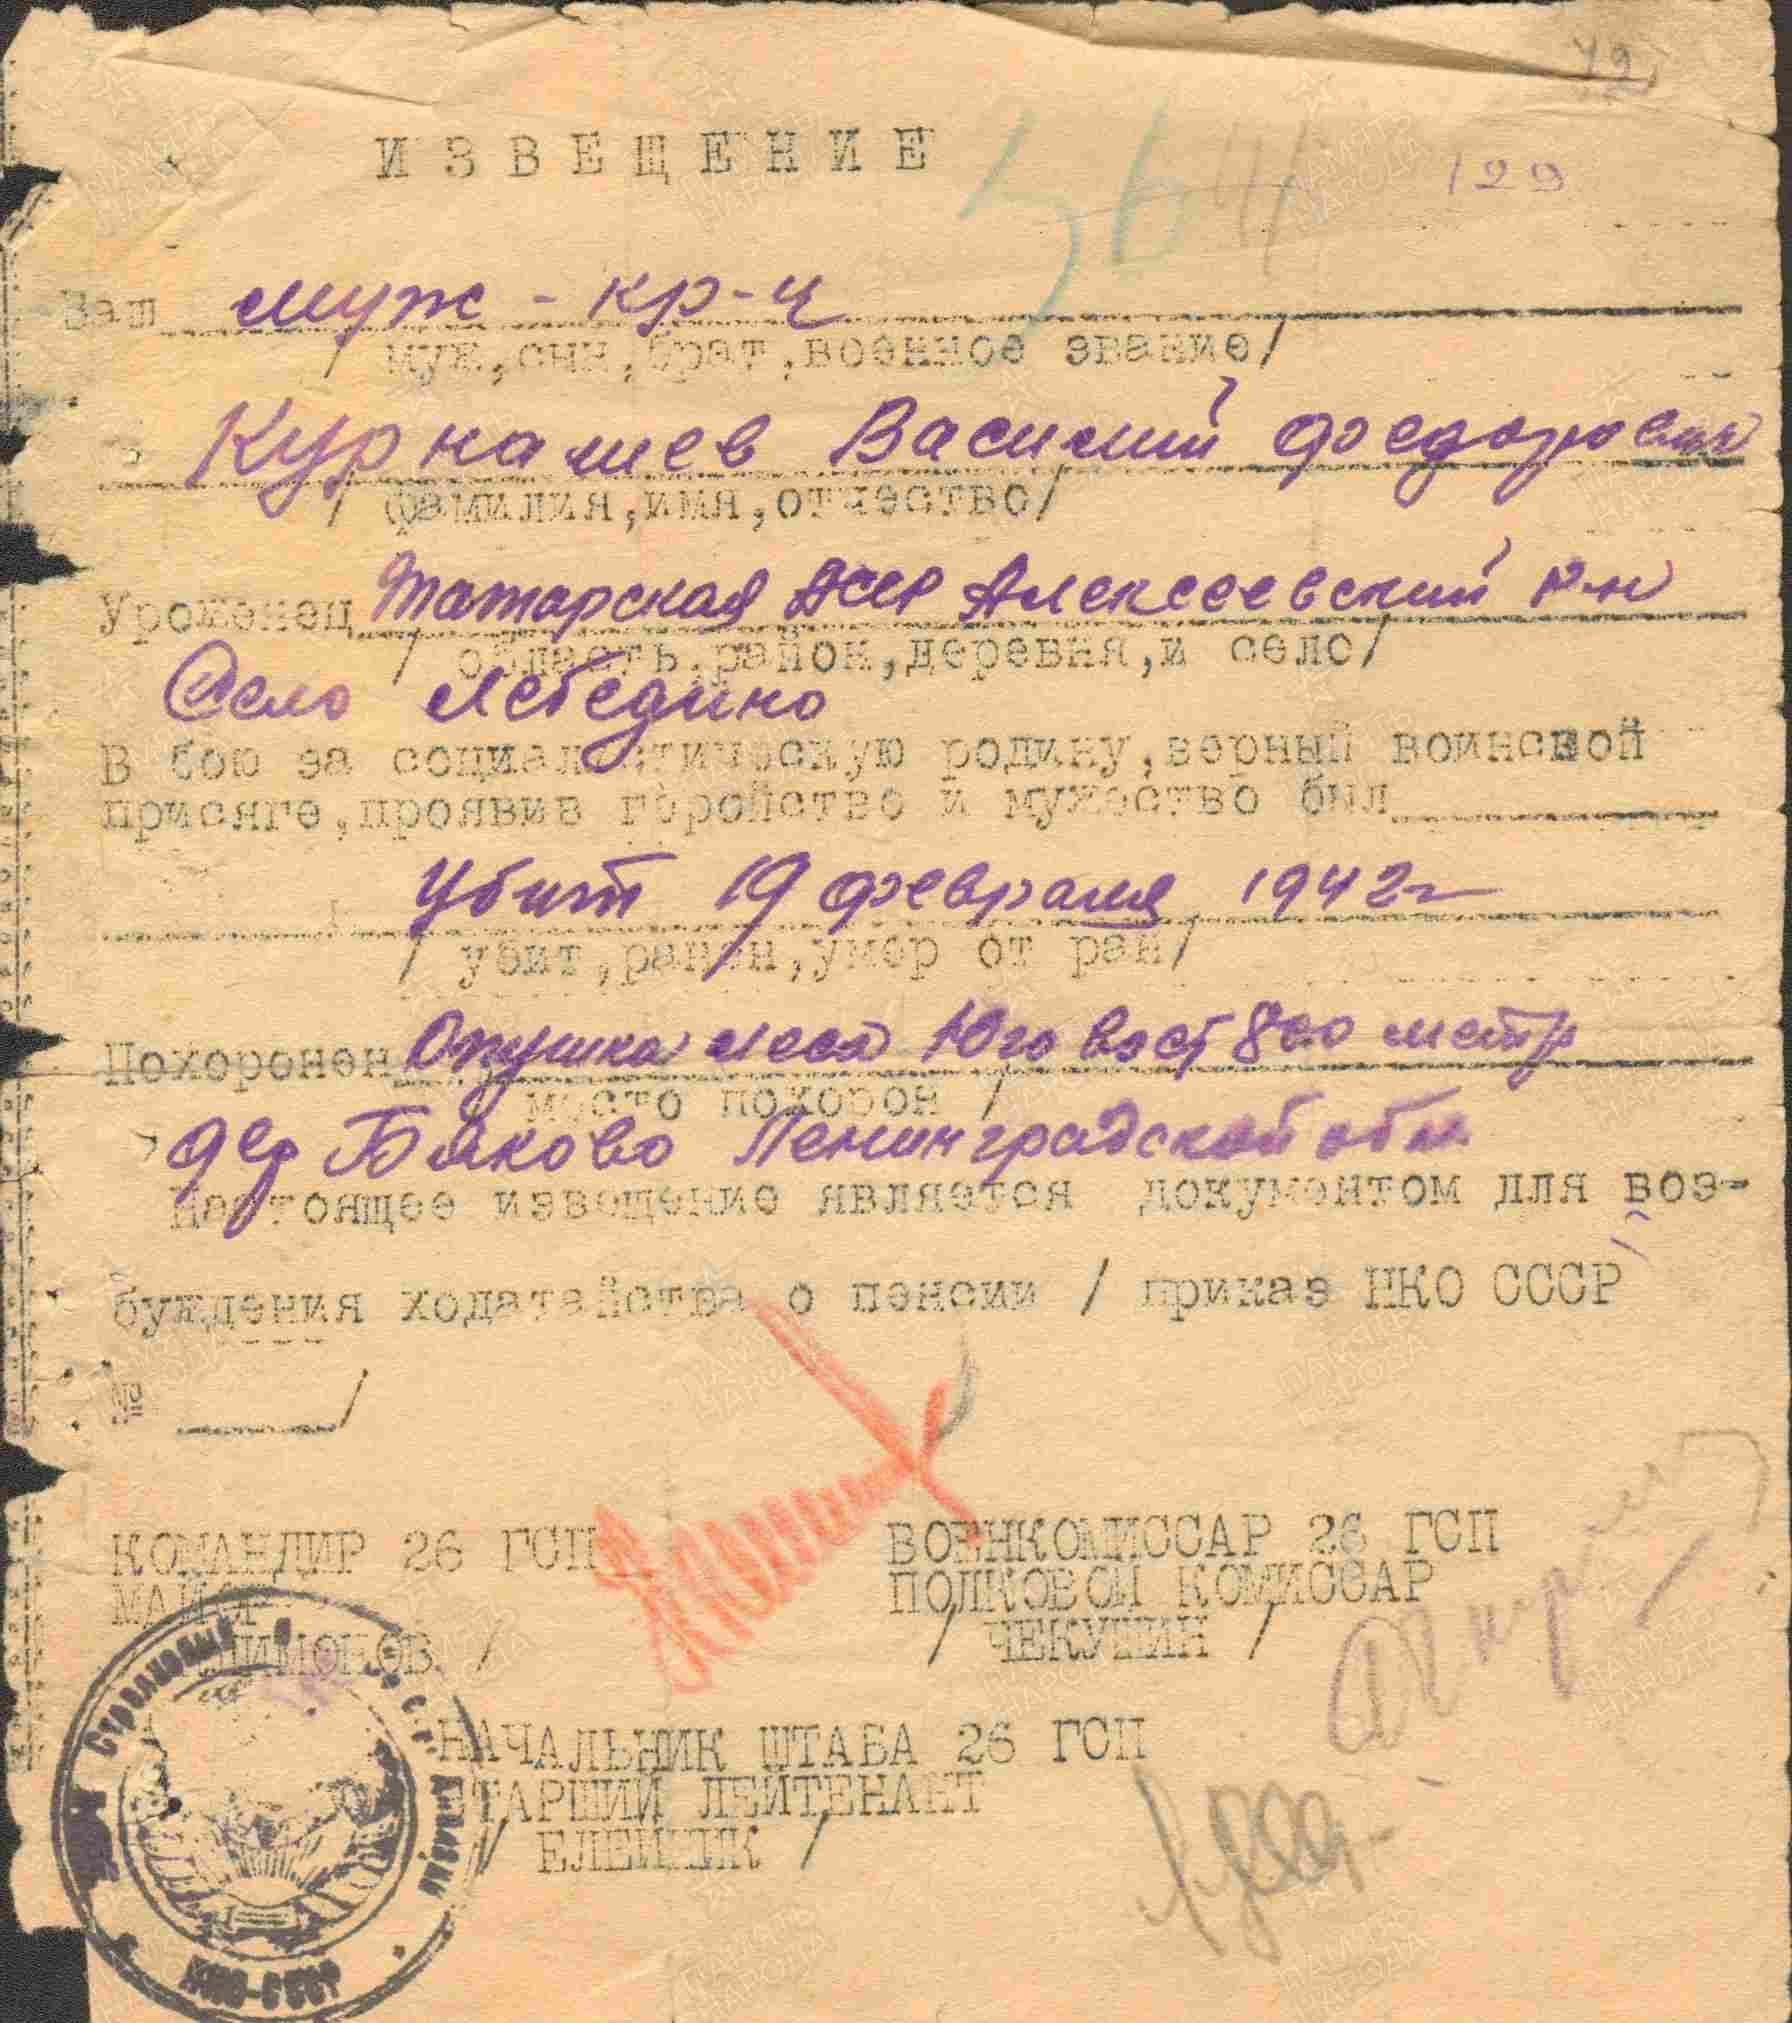 ИЗВЕЩЕНИЕ
129
Ваш муж - кр-ц
/ муж, сын, брат, военное звание/
Курналиев Василий Фоедорович
/ фамилия, имя, отчество/
Уроженец Татарская АССР Алексеевский р-н
/ область, район, деревня, и село/
Село Лебедино
В бою за социалистическую родину, верный воинской
присяге, проявив геройство и мужество был
Убит 19 февраля 1942 г
/ убит, ранен, умер от ран/
Похоронен Опушка леса Юго Вост 800 метр
/ место похорон /
дер Бяково Ленинградской обл.
Настоящее извещение является документом для воз-
буждения ходатайства о пенсии / приказ НКО СССР
№ ____/
КОМАНДИР 26 ГСП
МАЙОР
ВОЕНКОМИССАР 26 ГСП
ПОЛКОВОЙ КОМИССАР
/ /
НАЧАЛЬНИК ШТАБА 26 ГСП
СТАРШИЙ ЛЕЙТЕНАНТ
/ /
НКО-СССР